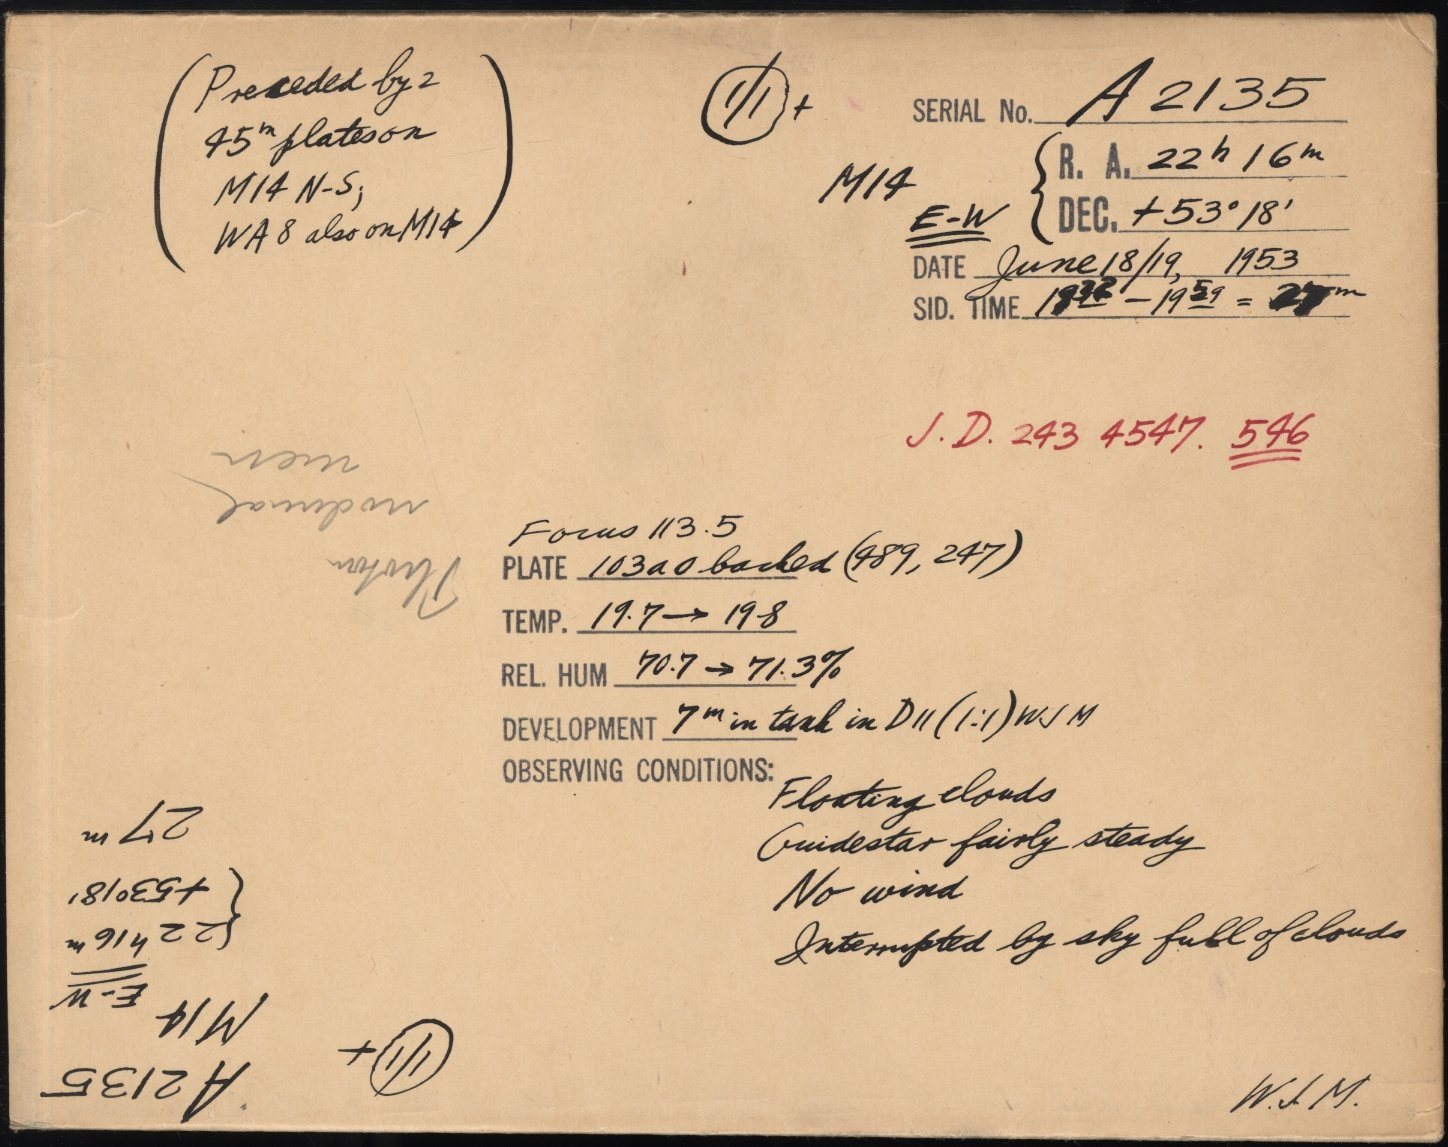 (Preceded by 2
45m plates on
M14 N-S;
WA 8 also on M14)
1/1 +
SERIAL No. A 2135
M14
E-W
R. A. 22h 16m
DEC. +53° 18'
DATE June 18/19, 1953
SID. TIME 19 32 - 19 59 = 27m
J.D. 243 4547. 546
Focus 113.5
PLATE 103aO backed (489, 247)
TEMP. 19.7 → 19.8
REL. HUM 70.7 → 71.3%
DEVELOPMENT 7m in tank in D11 (1:1) WJM
OBSERVING CONDITIONS:
Floating clouds
Guidestar fairly steady
No wind
Interrupted by sky full of clouds
W.J.M.
A 2135
M14
E-W
22h 16m
+53° 18'
27m
1/1 +